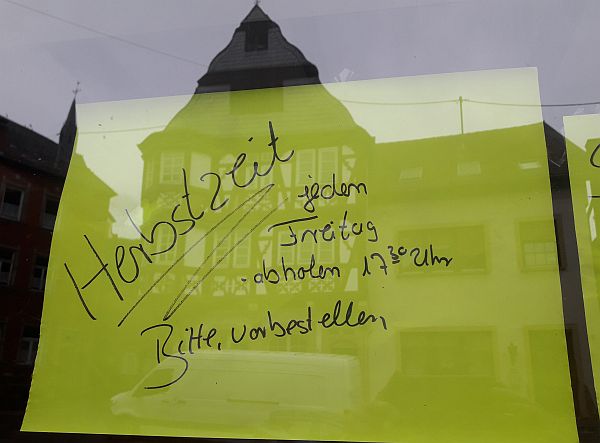 Herbstzeit
jeden
Freitag
abholen 17³⁰ Uhr
Bitte, vorbestellen,